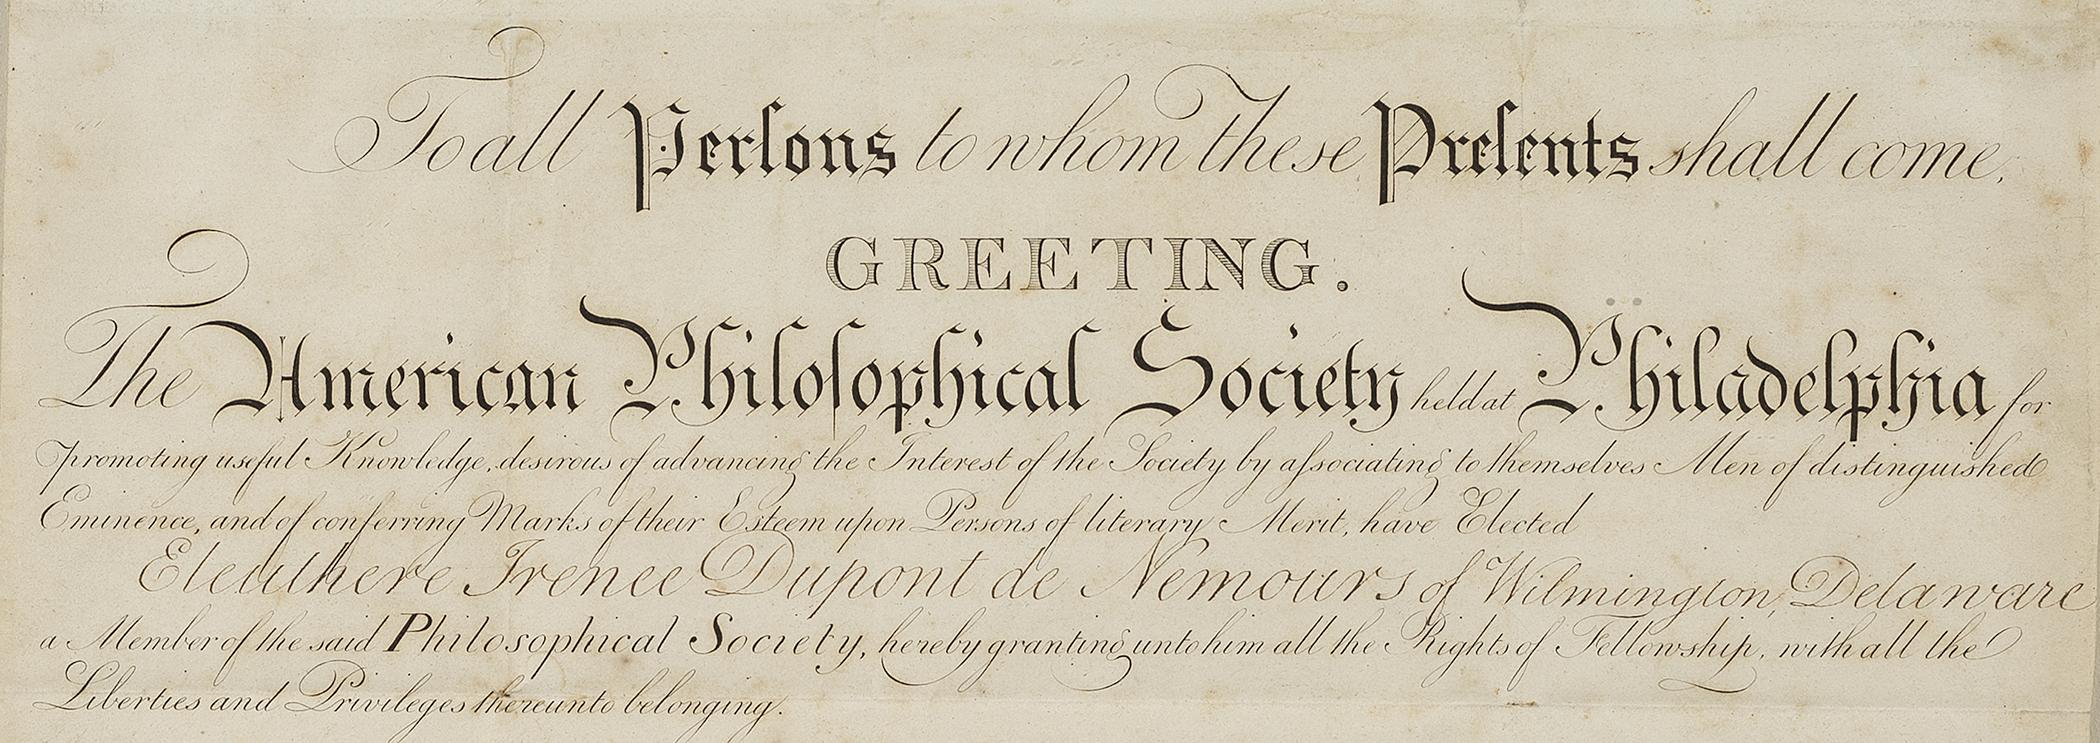 To all Perſons to whom These Preſents shall come,
GREETING.
The American Philoſophical Society held at Philadelphia for
promoting useful Knowledge, desirous of advancing the Interest of the Society by aſsociating to themselves Men of distinguished
Eminence, and of conferring Marks of their Esteem upon Persons of literary Merit, have Elected
Eleuthere Irenee Dupont de Nemours of Wilmington, Delaware
a Member of the said Philosophical Society, hereby granting unto him all the Rights of Fellowship, with all the
Liberties and Privileges thereunto belonging.